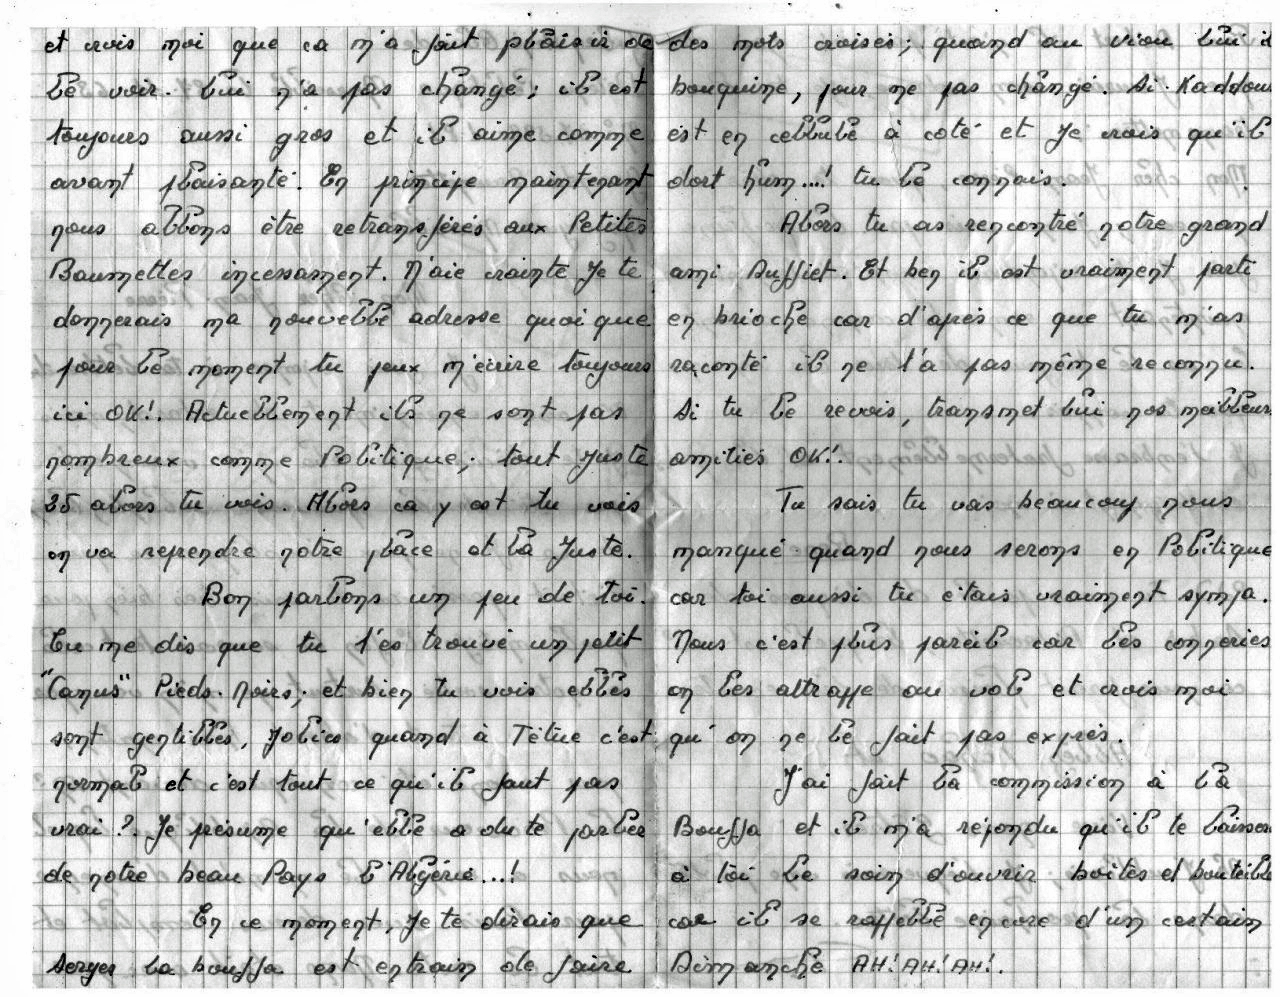 et crois moi que ca m'a fait plaisir de
le voir. Lui n'a pas changé ; il est
toujours aussi gros et il aime comme
avant plaisanté. En principe maintenant
nous allons être retransférés aux Petites
Baumettes incessament. N'aie crainte Je te
donnerais ma nouvelle adresse quoi que
pour le moment tu peux m'écrire toujours
ici OK!. Actuellement ils ne sont pas
nombreux comme Politique, tout Juste
35 alors tu vois. Alors ca y est tu vois
on va reprendre notre place et la Juste.
Bon parlons un peu de toi.
Tu me dis que tu t'es trouvé un petit
"Canus" Pieds-Noirs, et bien tu vois elles
sont gentilles, Jolies quand à Têtue c'est
normal et c'est tout ce qu'il faut pas
vrai ?. Je présume qu'elle a du te parler
de notre beau Pays l'Algérie...!
En ce moment, Je te dirais que
Serges la bouffa est entrain de faire
des mots croisés ; quand au vieu lui il
bouquine, pour ne pas changé. Si-Kaddour
est en cellule à coté et Je crois qu'il
dort hum...! tu le connais.
Alors tu as rencontré notre grand
ami Suffiet. Et ben il est vraiment parti
en brioche car d'après ce que tu m'as
raconté il ne t'a pas même reconnu.
Si tu le revois, transmet lui nos meilleurs
amitiés OK!.
Tu sais tu vas beaucoup nous
manqué quand nous serons en Politique
car toi aussi tu étais vraiment sympa.
Nous c'est plus pareil car les conneries
on les attrappe au vol et crois moi
qu'on ne le fait pas exprès.
J'ai fait la commission à la
Bouffa et il m'a répondu qu'il te laisse
à toi le soin d'ouvrir boites et bouteille
car il se rappelle encore d'un certain
Dimanche AH! AH! AH!.